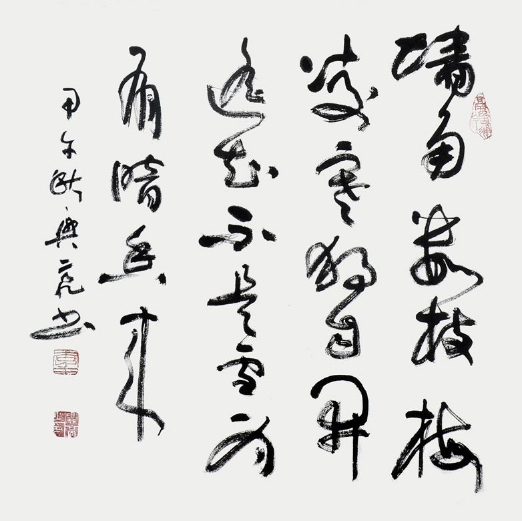 墙角数枝梅
凌寒独自开
遥知不是雪为
有暗香来
甲午秋兴亮书